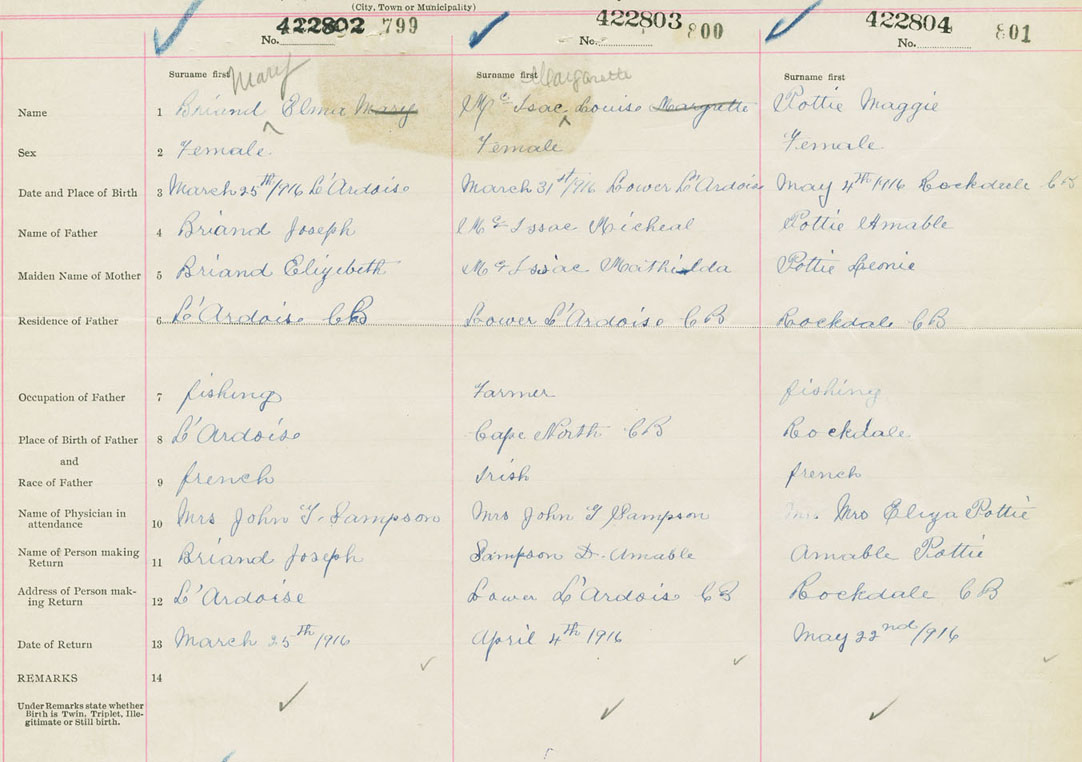 (City, Town or Municipality)
422802 799 422803 800 422804 801
No. No. No.
Surname first Mary Surname first Margarette Surname first
Name 1 Briand Elma Mary Mc Isac Louise Margrette Pottie Maggie
Sex 2 Female Female Female
Date and Place of Birth 3 March 25th/916 L'Ardoise March 31st/916 Lower L'Ardoise May 4th/916 Rockdale CB
Name of Father 4 Briand Joseph Mc Issac Micheal Pottie Amable
Maiden Name of Mother 5 Briand Elizebeth Mc Issac Mathilda Pottie Leonie
Residence of Father 6 L'Ardoise CB Lower L'Ardoise CB Rockdale CB
Occupation of Father 7 fishing Farmer fishing
Place of Birth of Father 8 L'Ardoise Cape North CB Rockdale
and
Race of Father 9 french Irish french
Name of Physician in
attendance 10 Mrs John T. Sampson Mrs John T Sampson Mrs Eliza Pottie
Name of Person making
Return 11 Briand Joseph Sampson D. Amable Amable Pottie
Address of Person mak-
ing Return 12 L'Ardoise Lower L'Ardois CB Rockdale CB
Date of Return 13 March 25th/916 April 4th 1916 May 22nd/916
REMARKS 14
Under Remarks state whether
Birth is Twin, Triplet, Ille-
gitimate or Still birth.